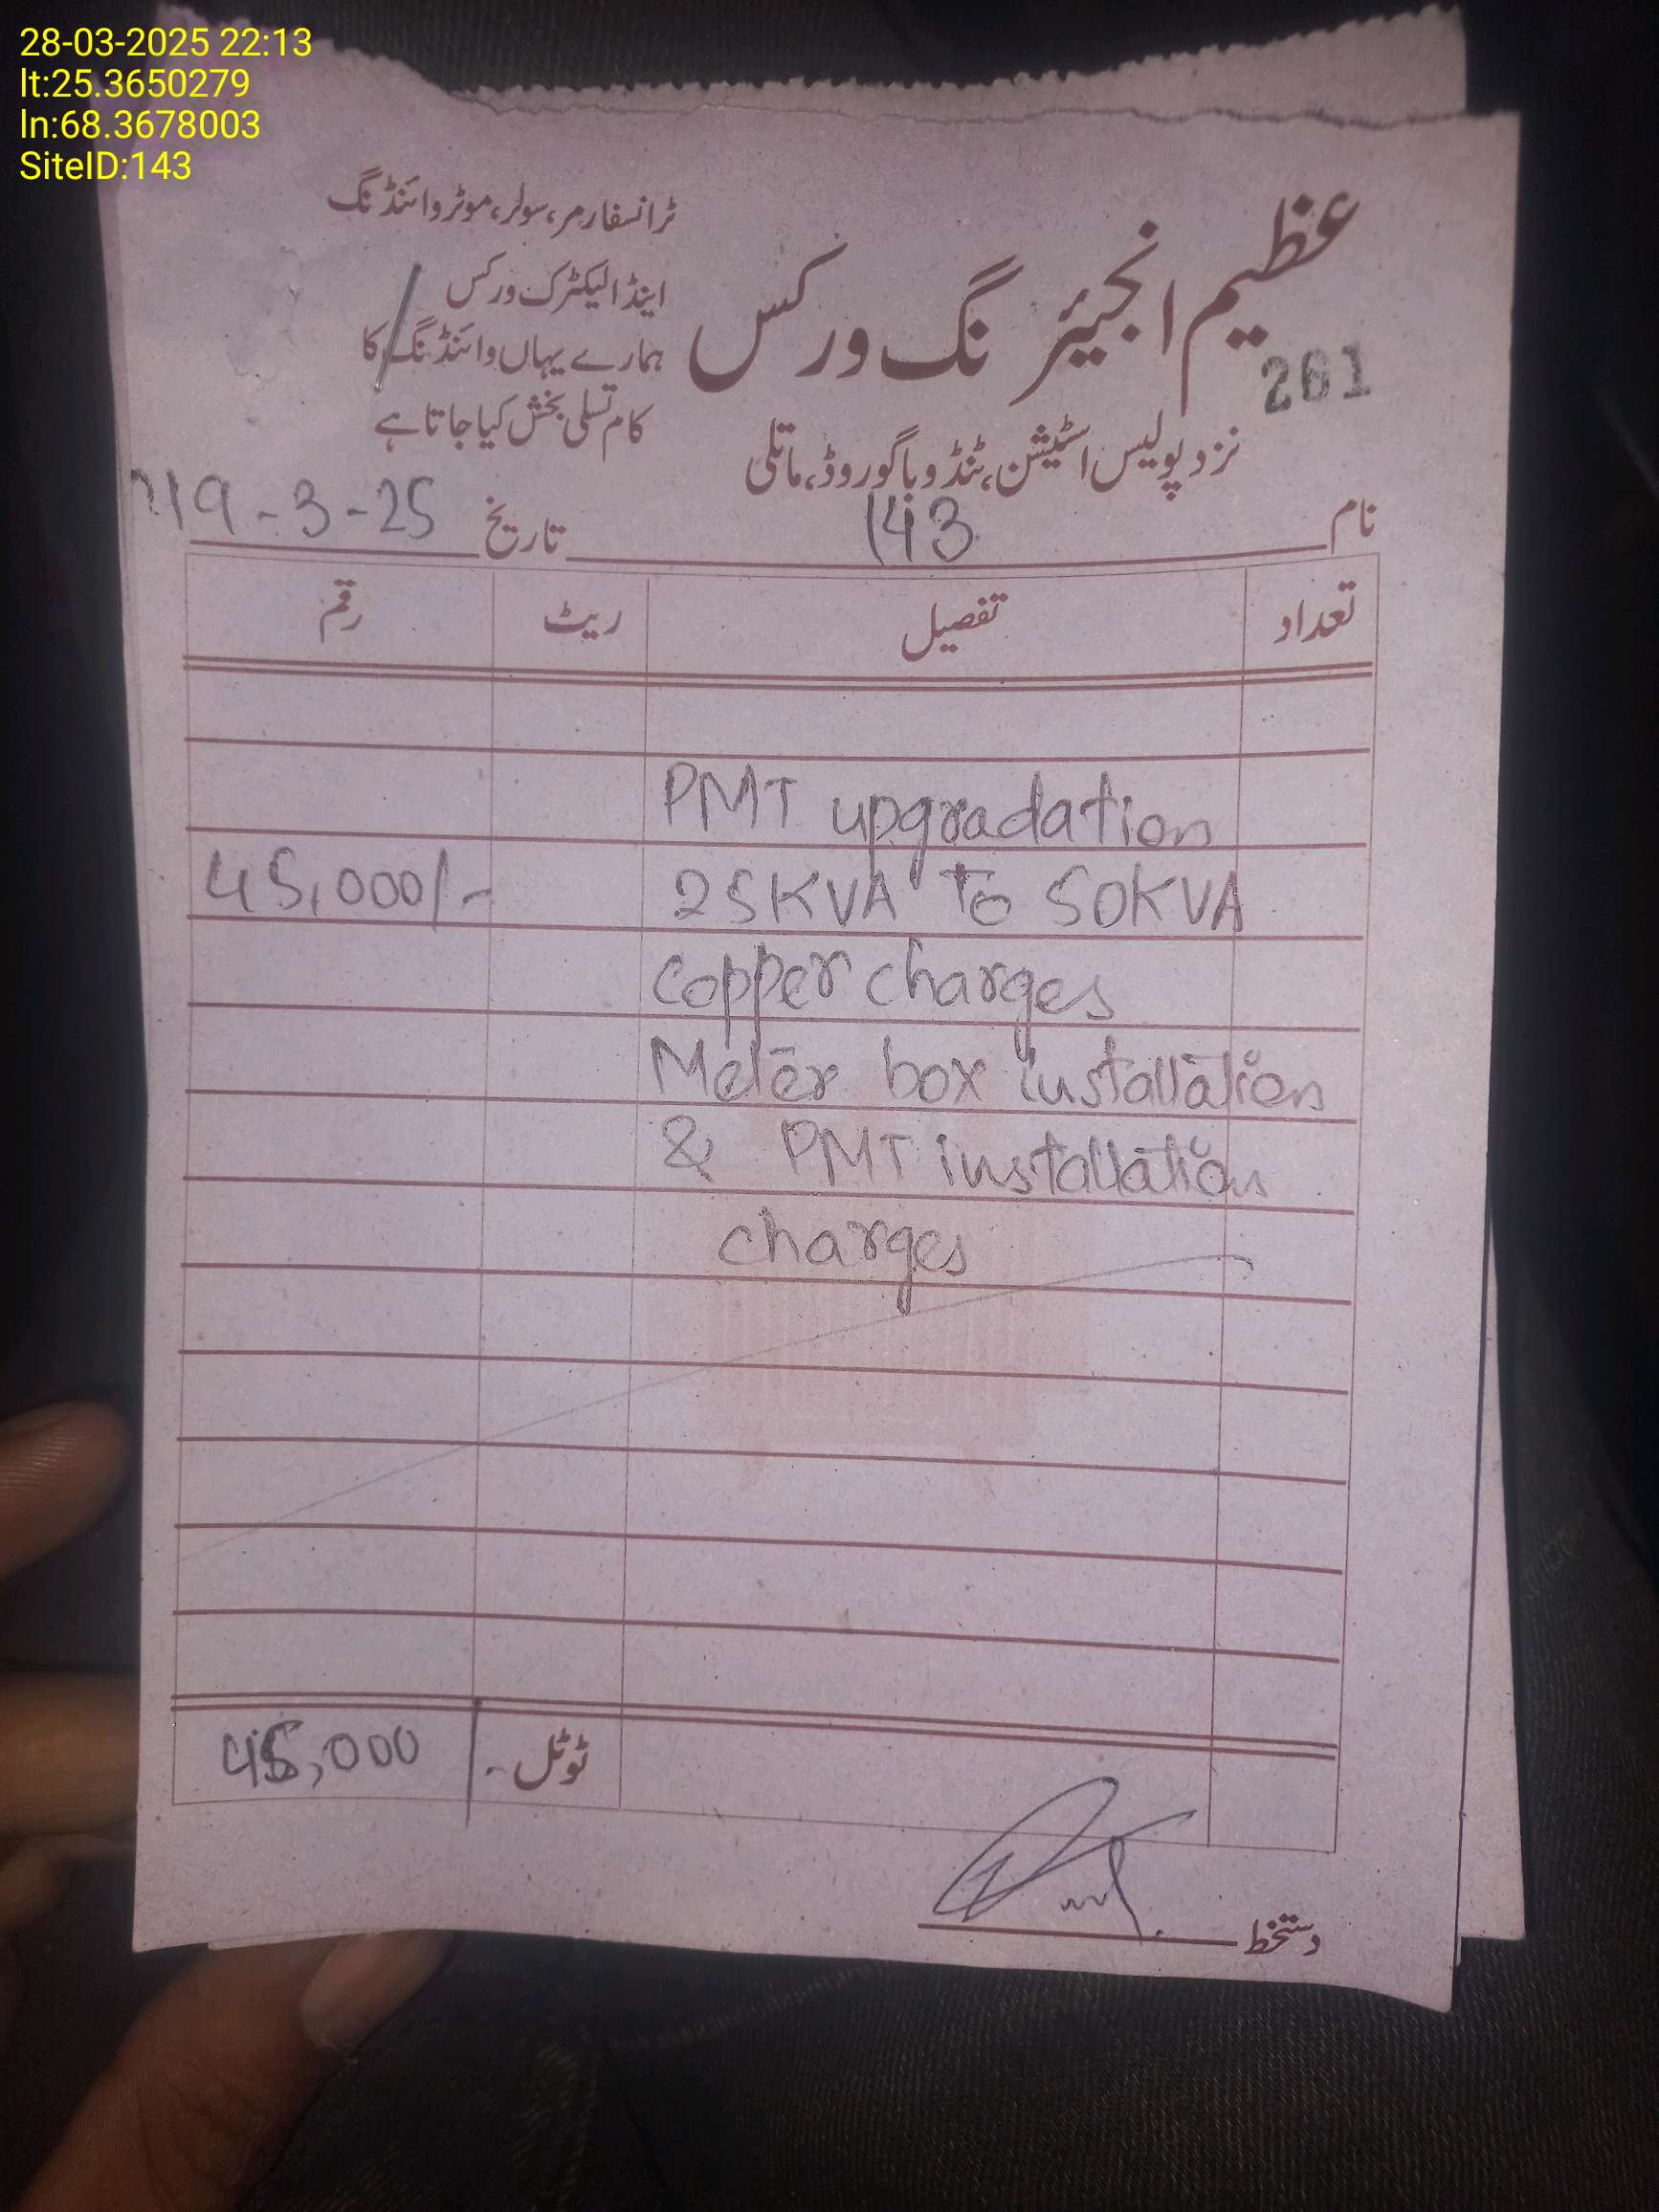 28-03-2025 22:13
lt:25.3650279
ln:68.3678003
SiteID:143
عظیم انجیئرنگ ورکس
ٹرانسفارمر، سولر، موٹر وائنڈنگ
اینڈ الیکٹرک ورکس
ہمارے یہاں وائنڈنگ کا
کام تسلی بخش کیا جاتا ہے
261
نزد پولیس اسٹیشن، ٹنڈو باگو روڈ، ماتلی
نام 143 تاریخ 19-3-25
تعداد تفصیل ریٹ رقم
PMT upgradation
25KVA To 50KVA 45,000/-
Copper charges
Meter box installation
& PMT installation
charges
ٹوٹل 45,000
دستخط